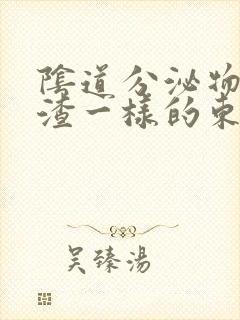 陰道分泌物
渣一樣的東
吴臻湯